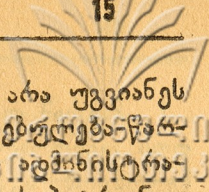 15
არა უგვიანეს
ებულება წარ-
ადმინისტრა-